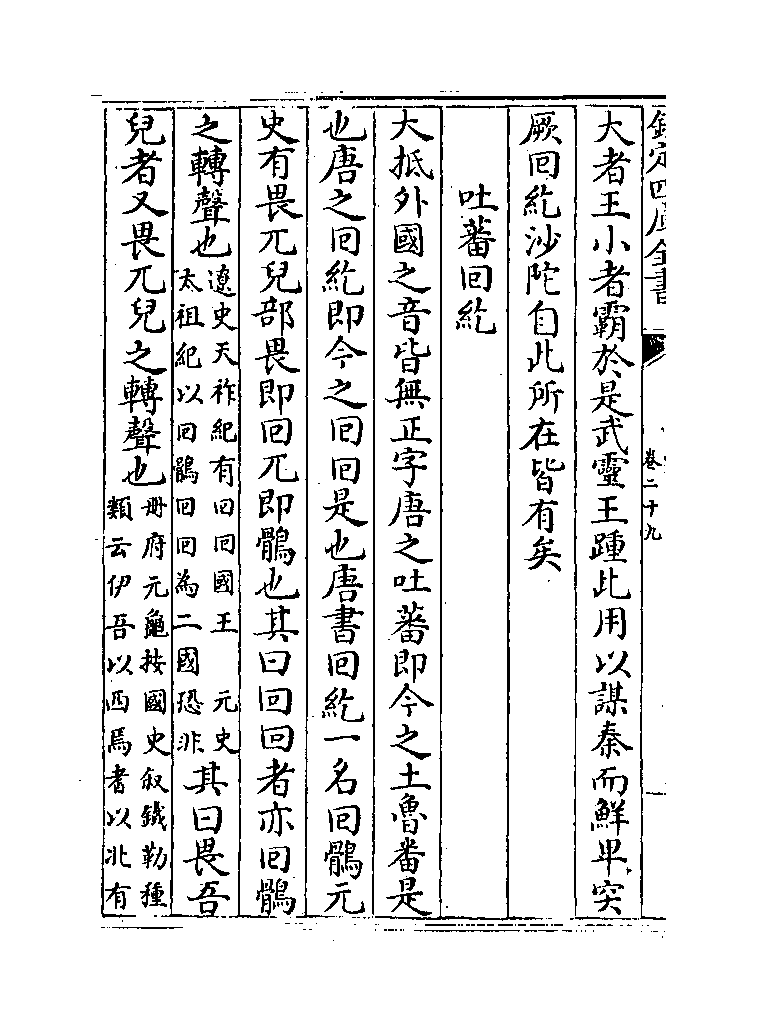 欽定四庫全書
卷二十九
大者王小者霸於是武靈王踵此用以謀秦而鮮卑突
厥回紇沙陀自此所在皆有矣
吐蕃回紇
大抵外國之音皆無正字唐之吐蕃即今之土魯番是
也唐之回紇即今之回回是也唐書回紇一名回鶻元
史有畏兀兒部畏即回兀即鶻也其曰回回者亦回鶻
之轉聲也
遼史天祚紀有回回國王 元史
太祖紀以回鶻回回為二國恐非
其曰畏吾
兒者又畏兀兒之轉聲也
冊府元龜按國史叙鐵勒種
類云伊吾以西焉耆以北有